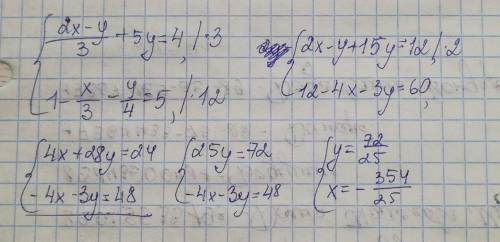 { (2x-y)/3 + 5y = 4, | ·3
{ 1 - x/3 - y/4 = 5, | ·12
{ 2x-y+15y=12, | ·2
{ 12-4x-3y=60,
{ 4x+28y=24
{ -4x-3y=48
{ 25y=72
{ -4x-3y=48
{ y = 72/25
{ x = - 354/25